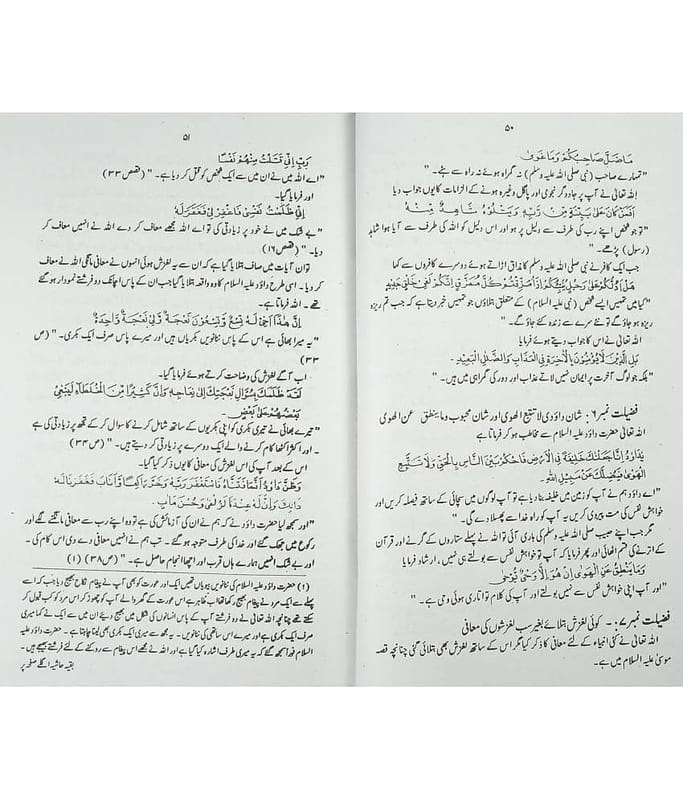 ۵۰
مَا ضَلَّ صَاحِبُكُمْ وَمَا غَوٰى
"تمہارے صاحب (نبی صلی اللہ علیہ وسلم) نہ گمراہ ہوئے نہ راہ سے ہٹے۔"
اللہ تعالیٰ نے آپ پر جادوگر نجومی اور پاگل وغیرہ ہونے کے الزامات کا یوں جواب دیا
اَفَمَنْ كَانَ عَلٰى بَيِّنَةٍ مِّنْ رَّبِّهٖ وَيَتْلُوْهُ شَاهِدٌ مِّنْهُ
"تو جو شخص اپنے رب کی طرف سے دلیل پر ہو اور اس دلیل کو اللہ کی طرف سے آیا ہوا شاہد
(رسول) پڑھے۔"
جب ایک کافر نے نبی صلی اللہ علیہ وسلم کا مذاق اڑاتے ہوئے دوسرے کافروں سے کہا
هَلْ نَدُلُّكُمْ عَلٰى رَجُلٍ يُّنَبِّئُكُمْ اِذَا مُزِّقْتُمْ كُلَّ مُمَزَّقٍ اِنَّكُمْ لَفِيْ خَلْقٍ جَدِيْدٍ
"کیا میں تمہیں ایسے شخص (نبی علیہ السلام) کے متعلق بتلاؤں جو تمہیں خبر دیتا ہے کہ جب تم ریزہ
ریزہ ہو جاؤ گے تو نئے سرے سے زندہ کئے جاؤ گے۔"
اللہ تعالیٰ نے اس کا جواب دیتے ہوئے فرمایا
بَلِ الَّذِيْنَ لَا يُؤْمِنُوْنَ بِالْاٰخِرَةِ فِى الْعَذَابِ وَالضَّلٰلِ الْبَعِيْدِ۔
"بلکہ جو لوگ آخرت پر ایمان نہیں لاتے عذاب اور دور کی گمراہی میں ہیں۔"
فضیلت نمبر ۶: شان داؤدی لا تتبع الھوی اور شان محبوب وما ینطق عن الھوی
اللہ تعالیٰ حضرت داؤد علیہ السلام سے مخاطب ہو کر فرماتا ہے
يٰدَاوٗدُ اِنَّا جَعَلْنٰكَ خَلِيْفَةً فِى الْاَرْضِ فَاحْكُمْ بَيْنَ النَّاسِ بِالْحَقِّ وَلَا تَتَّبِعِ
الْهَوٰى فَيُضِلَّكَ عَنْ سَبِيْلِ اللّٰهِ۔
"اے داؤد ہم نے آپ کو زمین میں خلیفہ بنا دیا ہے تو آپ لوگوں میں سچائی کے ساتھ فیصل کریں اور
خواہش نفس کی مت پیروی کریں یہ آپ کو راہ خدا سے پھسلا دے گی۔"
مگر جب اپنے حبیب صلی اللہ علیہ وسلم کی باری آئی تو اللہ تعالیٰ نے پہلے ستاروں کے گرنے اور قرآن
کے اترنے کی قسم اٹھائی اور پھر فرمایا کہ آپ تو خواہش نفس سے بولتے ہی نہیں، ارشاد فرمایا
وَمَا يَنْطِقُ عَنِ الْهَوٰى اِنْ هُوَ اِلَّا وَحْىٌ يُّوْحٰى
"اور آپ اپنی خواہش نفس سے نہیں بولتے اور آپ کی کلام تو اتاری ہوئی وحی ہے۔"
فضیلت نمبر ۷:۔ کوئی لغزش بتلائے بغیر سب لغزشوں کی معافی
اللہ تعالیٰ نے کئی انبیاء کے لئے معافی کا ذکر کیا مگر اس کے ساتھ لغزش بھی بتلائی گئی چنانچہ قصہ
موسیٰ علیہ السلام میں ہے۔
۵۱
رَبِّ اِنِّىْ قَتَلْتُ مِنْهُمْ نَفْسًا
"اے اللہ میں نے ان میں سے ایک شخص کو قتل کر دیا ہے۔" (قصص ۳۳)
اور فرمایا گیا۔
اِنِّىْ ظَلَمْتُ نَفْسِىْ فَاغْفِرْ لِىْ فَغَفَرَ لَهٗ
"بے شک میں نے خود پر زیادتی کی تو اے اللہ مجھے معاف کر دے اللہ نے انہیں معاف کر
دیا۔" (قصص ۱۶)
تو ان آیات میں صاف بتلایا گیا ہے کہ ان سے یہ لغزش ہوئی انہوں نے معافی مانگی اللہ نے معاف
کر دیا۔ اسی طرح داؤد علیہ السلام کا وہ واقعہ بتلایا گیا جب ان کے پاس اچانک دو فرشتے نمودار ہو گئے
تھے۔ اللہ فرماتا ہے۔
اِنَّ هٰذَا اَخِىْ لَهٗ تِسْعٌ وَّتِسْعُوْنَ نَعْجَةً وَّلِىَ نَعْجَةٌ وَّاحِدَةٌ
"یہ میرا بھائی ہے اس کے پاس ننانویں بکریاں ہیں اور میرے پاس صرف ایک بکری۔" (ص
۳۳)
اب آگے لغزش کی وضاحت کرتے ہوئے فرمایا گیا۔
لَقَدْ ظَلَمَكَ بِسُؤَالِ نَعْجَتِكَ اِلٰى نِعَاجِهٖ وَاِنَّ كَثِيْرًا مِّنَ الْخُلَطَآءِ لَيَبْغِىْ
بَعْضُهُمْ عَلٰى بَعْضٍ۔
"تیرے بھائی نے تیری بکری کو اپنی بکریوں کے ساتھ شامل کرنے کا سوال کر کے تجھ پر زیادتی کی ہے
۔ اور اکثر اکٹھا کام کرنے والے ایک دوسرے پر زیادتی کر دیتے ہیں۔" (ص ۳۴)
اس کے بعد آپ کی اس لغزش کی معافی کا یوں ذکر کیا گیا۔
وَظَنَّ دَاوٗدُ اَنَّمَا فَتَنّٰهُ فَاسْتَغْفَرَ رَبَّهٗ وَخَرَّ رَاكِعًا وَّاَنَابَ فَغَفَرْنَا لَهٗ
ذٰلِكَ وَاِنَّ لَهٗ عِنْدَنَا لَزُلْفٰى وَحُسْنَ مَاٰبٍ۔
"اور سمجھ لیا حضرت داؤد نے کہ ہم نے ان کی آزمائش کی ہے تو وہ اپنے رب سے معافی مانگنے لگے اور
رکوع میں جھک گئے اور خدا کی طرف متوجہ ہو گئے۔ تب ہم نے انہیں معافی دے دی اس کام کی۔
اور بے شک انہیں ہمارے ہاں قرب اور اچھا انجام حاصل ہے۔" (ص ۳۸) (۱)
(۱) حضرت داؤد علیہ السلام کی ننانویں بیویاں تھیں ایک اور عورت کو بھی آپ نے پیغام نکاح بھیج دیا جب کہ اسے
پہلے سے ایک مرد نے پیغام بھیج رکھا تھا اب ظاہر ہے اس عورت کے گھر والے آپ کو چھوڑ کر اس مرد کو کب قبول کر
سکتے تھے چنانچہ اللہ تعالیٰ نے دو فرشتے آپ کے پاس انسانوں کی شکل میں بھیج دیئے ان میں سے ایک نے کہا میری
صرف ایک بکری ہے اور میرے اس ساتھی کی ننانویں۔ یہ مجھ سے میری ایک بکری بھی لینا چاہتا ہے۔ حضرت داؤد علیہ
السلام فوراً سمجھ گئے کہ یہ میری طرف اشارہ کیا گیا ہے اور اللہ نے مجھے اس پیغام سے روکنے کے لئے فرشتے بھیجے ہیں۔
بقیہ حاشیہ اگلے صفحہ پر